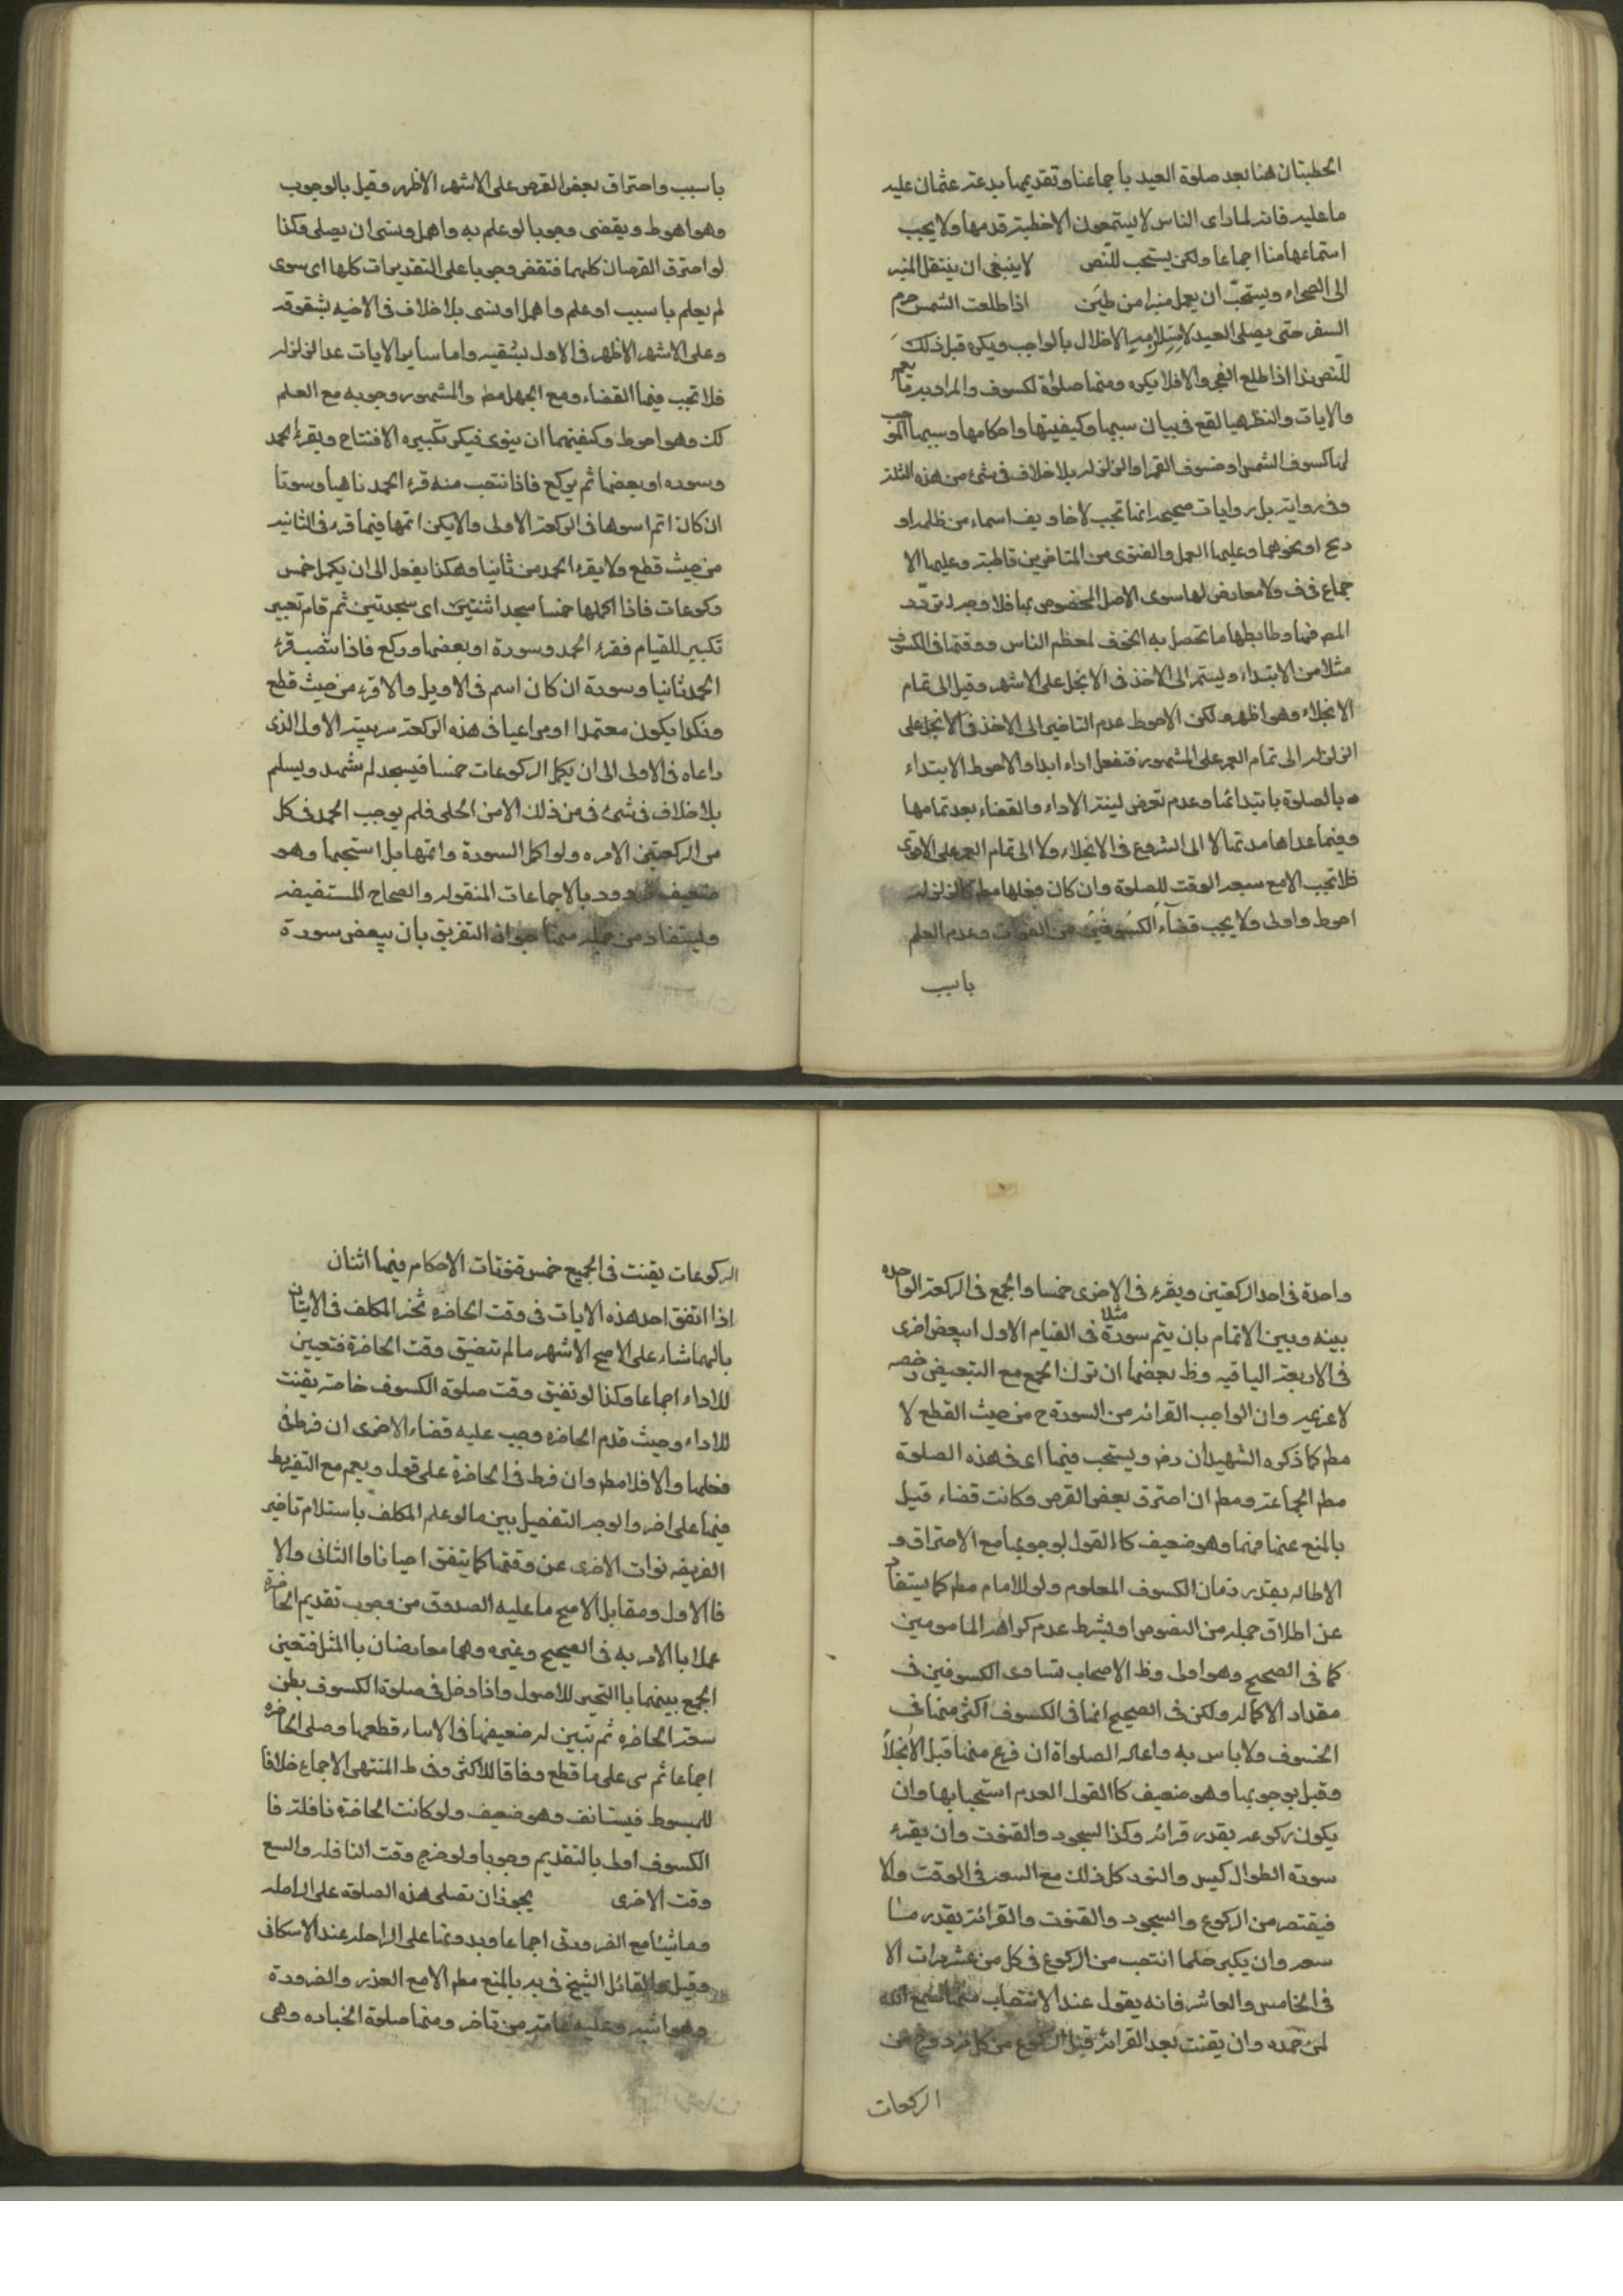 الخطبتان هنا بعد صلوة العيد باجماعنا وتقديمها بدعة عثمان عليه
ما عليه فانه لما رای الناس لا يستمعون الا خطبته قدمها ولا يجب
استماعها منا اجماعا ولكن يستحب للنص لا ينبغی ان ينتقل المنبر
الی الصحراء ويستحب ان يعمل منبرا من طين اذا طلعت الشمس حرم
السفر حتی يصلی العيد لاستلزامه الاخلال بالواجب ويكره قبل ذلك
للنص هذا اذا طلع الفجر والا فلا يكره ومنها صلوة لكسوف والمراد به ما يعم
والايات والنظر هيا لقع فی بيان سببها وكيفيتها واحكامها وسببها الموجب
لها كسوف الشمس او خسوف القمر او الزلزله بلا خلاف فی شیء من هذه الثلثة
وفی رواية بل روايات صحيحه انها تجب لاخاويف السماء من ظلمه او
ريح او نحوهما وعليها العمل والفتوی من المتاخرين قاطبة وعليها الا
جماع فی ف ولا معارض لها سوی الاصل المخصوص بها فلا وجه لتردد
المص فيها وضابطها ما تحصل به الخوف لمعظم الناس ووقتها فی الكسوف
مثلا من الابتداء ويستمر الی الاخذ فی الانجلا علی الاشهر وقيل الی تمام
الانجلاء وهو اظهر ولكن الاحوط عدم التاخير الی الاخذ فی الانجلا وعلی
الزلزله الی تمام العمر علی المشهور فتفعل اداء ابدا والاحوط الابتداء
بالصلوة بابتدائها وعدم تعرض لينة الاداء والقضاء بعد تمامها
وفيما عداها مدتها لا الی الشروع فی الانجلاء ولا الی تمام العمر علی الاقوی
فلا تجب الا مع سعه الوقت للصلوة وان كان فعلها مط كالزلزله
احوط واولی ولا يجب قضاء الكسوفين من الفوات وعدم العلم
باسبب
باسبب واحتراق بعض القرص علی الاشهر الاظهر وقيل بالوجوب
وهو احوط ويقضی وجوبا لو علم به واهمل ونسی ان يصلی وكذا
لو احترق القرصان كليهما فتقضی وجوبا علی التقديرات كلها ای سوی
لم يعلم باسبب او علم واهمل او نسی بلا خلاف فی الاخيه بشقوقه
وعلی الاشهر الاظهر فی الاول بشقيه واما سایر الايات عدا الزلزله
فلا تجب فيها القضاء ومع الجهل مط والمشهور وجوبه مع العلم
كك وهو احوط وكيفيتهما ان ينوی فيكبر تكبيره الافتتاح ويقرء الحمد
وسوره او بعضها ثم يركع فاذا نتصب منه قرء الحمد ثانيا وسوتا
ان كان اتم السوها فی الركعة الاولی والا يكن اتمها فيما قره فی الثانيه
من حيث قطع ولا يقرء الحمد من ثانيا وهكذا يفعل الی ان يكمل خمس
ركوعات فاذا اكملها خمسا سجدا ثنتين ای سجدتين ثم قام بغير
تكبير للقيام فقرء الحمد وسورة او بعضها وركع فاذا انتصب قرء
الحمد ثانيا وسورة ان كان اسم فی الاويل والا قرء من حيث قطع
وتكرا يكون معتمدا او مراعيا فی هذه الركعة سربيته الاول الذی
راعاه فی الاولی الی ان يكمل الركوعات خمسا فيسجد لم شهد ويسلم
بلا خلاف فی شیء فی من ذلك الا من الحلی فلم يوجب الحمد فی كل
من الركعتين الا مره ولو اكمل السورة واتمها بل استحبها وهو
ضعيف مردود بالاجماعات المنقوله والصحاح المستفيضه
وليستفاد من جمله منها جواز التفريق بان يبعض سورة
واحدة فی احد الركعتين ويقرء فی الاخری خمسا والجمع فی الركعة الواحده
بينه وبين الاتمام بان يتم سورة مثلا فی القيام الاول ا يبعض اخری
فی الاربعة الباقيه وظ بعضها ان ترك الجمع مع التبعيض رخصه
لا عزيمه وان الواجب القرائه من السورة ح من حيث القطع لا
مط كما ذكره الشهيدان رض ويستحب فيها ای فی هذه الصلوة
مط الجماعة ومط ان احترق بعض القرص وكانت قضاء قيل
بالمنع عنها منها وهو ضعيف كالقول بوجوبها مع الاحتراق و
الاطاله بقدر زمان الكسوف المعلوم ولو للامام مط كما يستفاد
عن اطلاق جمله من النصوص او بشرط عدم كراهة المامومين
كما فی الصحيح وهو اولی وظ الاصحاب تساوی الكسوفين فی
مقدار الاكماله ولكن فی الصحيح انها فی الكسوف اكثر منها فی
الخسوف ولا باس به واعاله الصلواة ان فرغ منها قبل الانجلاء
وقيل بوجوبها وهو ضعيف كالقول العدم استحبابها وان
يكون ركوعه بقدر قرائه وكذا السجود والقنوت وان يقرء
سورة الطوال كيس والنور كل ذلك مع السعه فی الوقت والا
فيقتصر من الركوع والسجود والقنوت والقرائه بقدر منا
سعه وان يكبر كلما انتصب من الركوع فی كل من عشر مرات الا
فی الخامس والعاشر فانه يقول عند الانتصاب منهما سمع الله
لمن حمده وان يقنت بعد القرائه قبل الركوع من كل فرد وزج من
الركعات
الركوعات يقنت فی الجميع خمس قنوتات الاحكام فيها اثنان
اذا اتفق احد هذه الايات فی وقت الحاضره تخير المكلف فی الاتيان
بايهما شاء علی الاصح الاشهر ما لم تتضيق وقت الحاضرة فتعيين
للاداء اجماعا وكذا لو تضيق وقت صلوة الكسوف خاصة يقنت
للاداء وحيث قدم الحاضره وجب عليه قضاء الاخری ان فرط فی
فعلها والا فلا مط وان فرط فی الحاضرة علی قول ويعم مع التفريط
فيها علی اخر والوجه التفصيل بين ما لو علم المكلف باستلام تاخير
الفريضه نوات الاخری عن وقتها كما يتفق احيانا فا الثانی والا
فا الاول ومقابل الاصح ما عليه الصدوق من وجوب تقديم الحاضرة
عملا با الامر به فی الصحيح وغيره وهما معارضان با المثل فتعين
الجمع بينهما با التحير للاصول واذا دخل فی صلوة الكسوف بظن
سعة الحاضره ثم تبين له ضعيفها فی الاساء قطعها وصلی الحاضره
اجماعا ثم سی علی ما قطع وفاقا للاكثر وفی ط المنتهی الاجماع خلافا
للمبسوط فيستانف وهو ضعيف ولو كانت الحاضرة نافلة فا
الكسوف اولی بالتقديم وجوبا ولو خرج وقت النافله والسع
وقت الاخری يجوز ان تصلی هذه الصلوة علی الراحله
وماشيا مع الضرورتی اجماعا وبدونها علی الراحله عند الاسكافی
وقيل والقائل الشيخ فی يه بالمنع مط الا مع العذر والضرورة
وهو اشبه وعليه عامة من تاخر ومنها صلوة الجنازه وهی